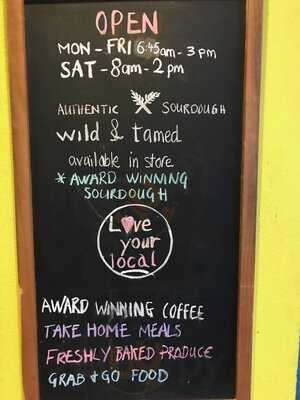 OPEN
MON - FRI 6:45am - 3pm
SAT - 8am - 2pm
AUTHENTIC SOURDOUGH
wild & tamed
available in store
* AWARD WINNING
SOURDOUGH
Love
your
local
AWARD WINNING COFFEE
TAKE HOME MEALS
FRESHLY BAKED PRODUCE
GRAB + GO FOOD